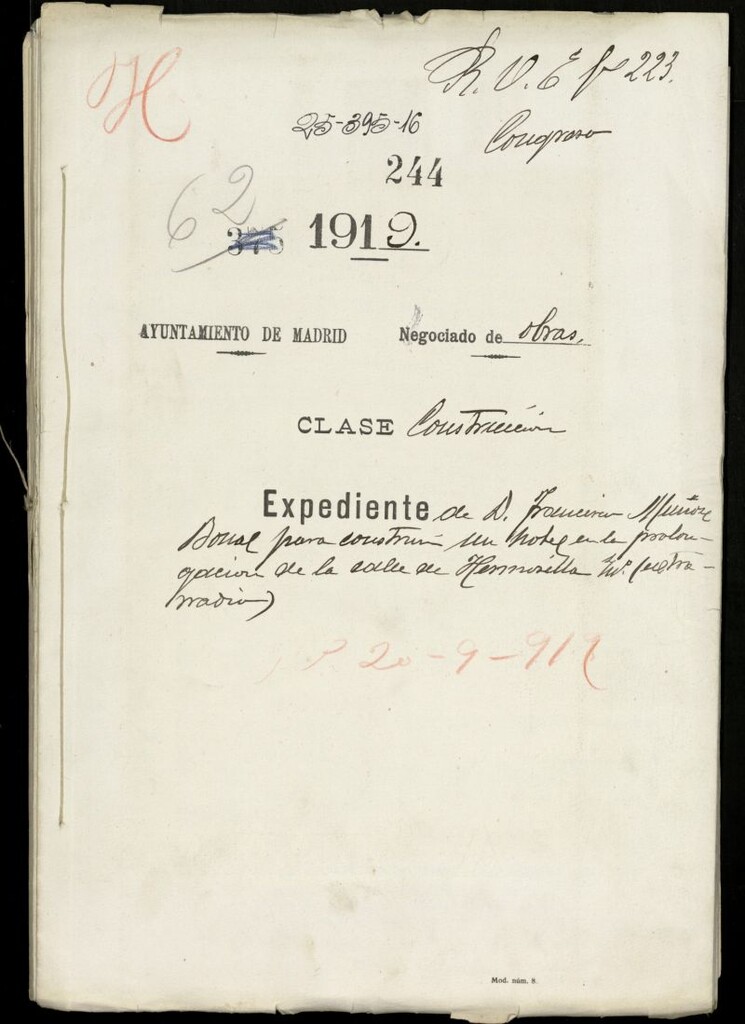 H
R. V. E fº 223.
25-395-16
Congreso
244
62
375 1919.
AYUNTAMIENTO DE MADRID Negociado de obras.
CLASE Construcción
Expediente de D. Francisco Muñoz
Bonal para construir un hotel en la prolon-
gación de la calle de Hermosilla (extra-
rradio)
20-9-919
Mod. núm. 8.